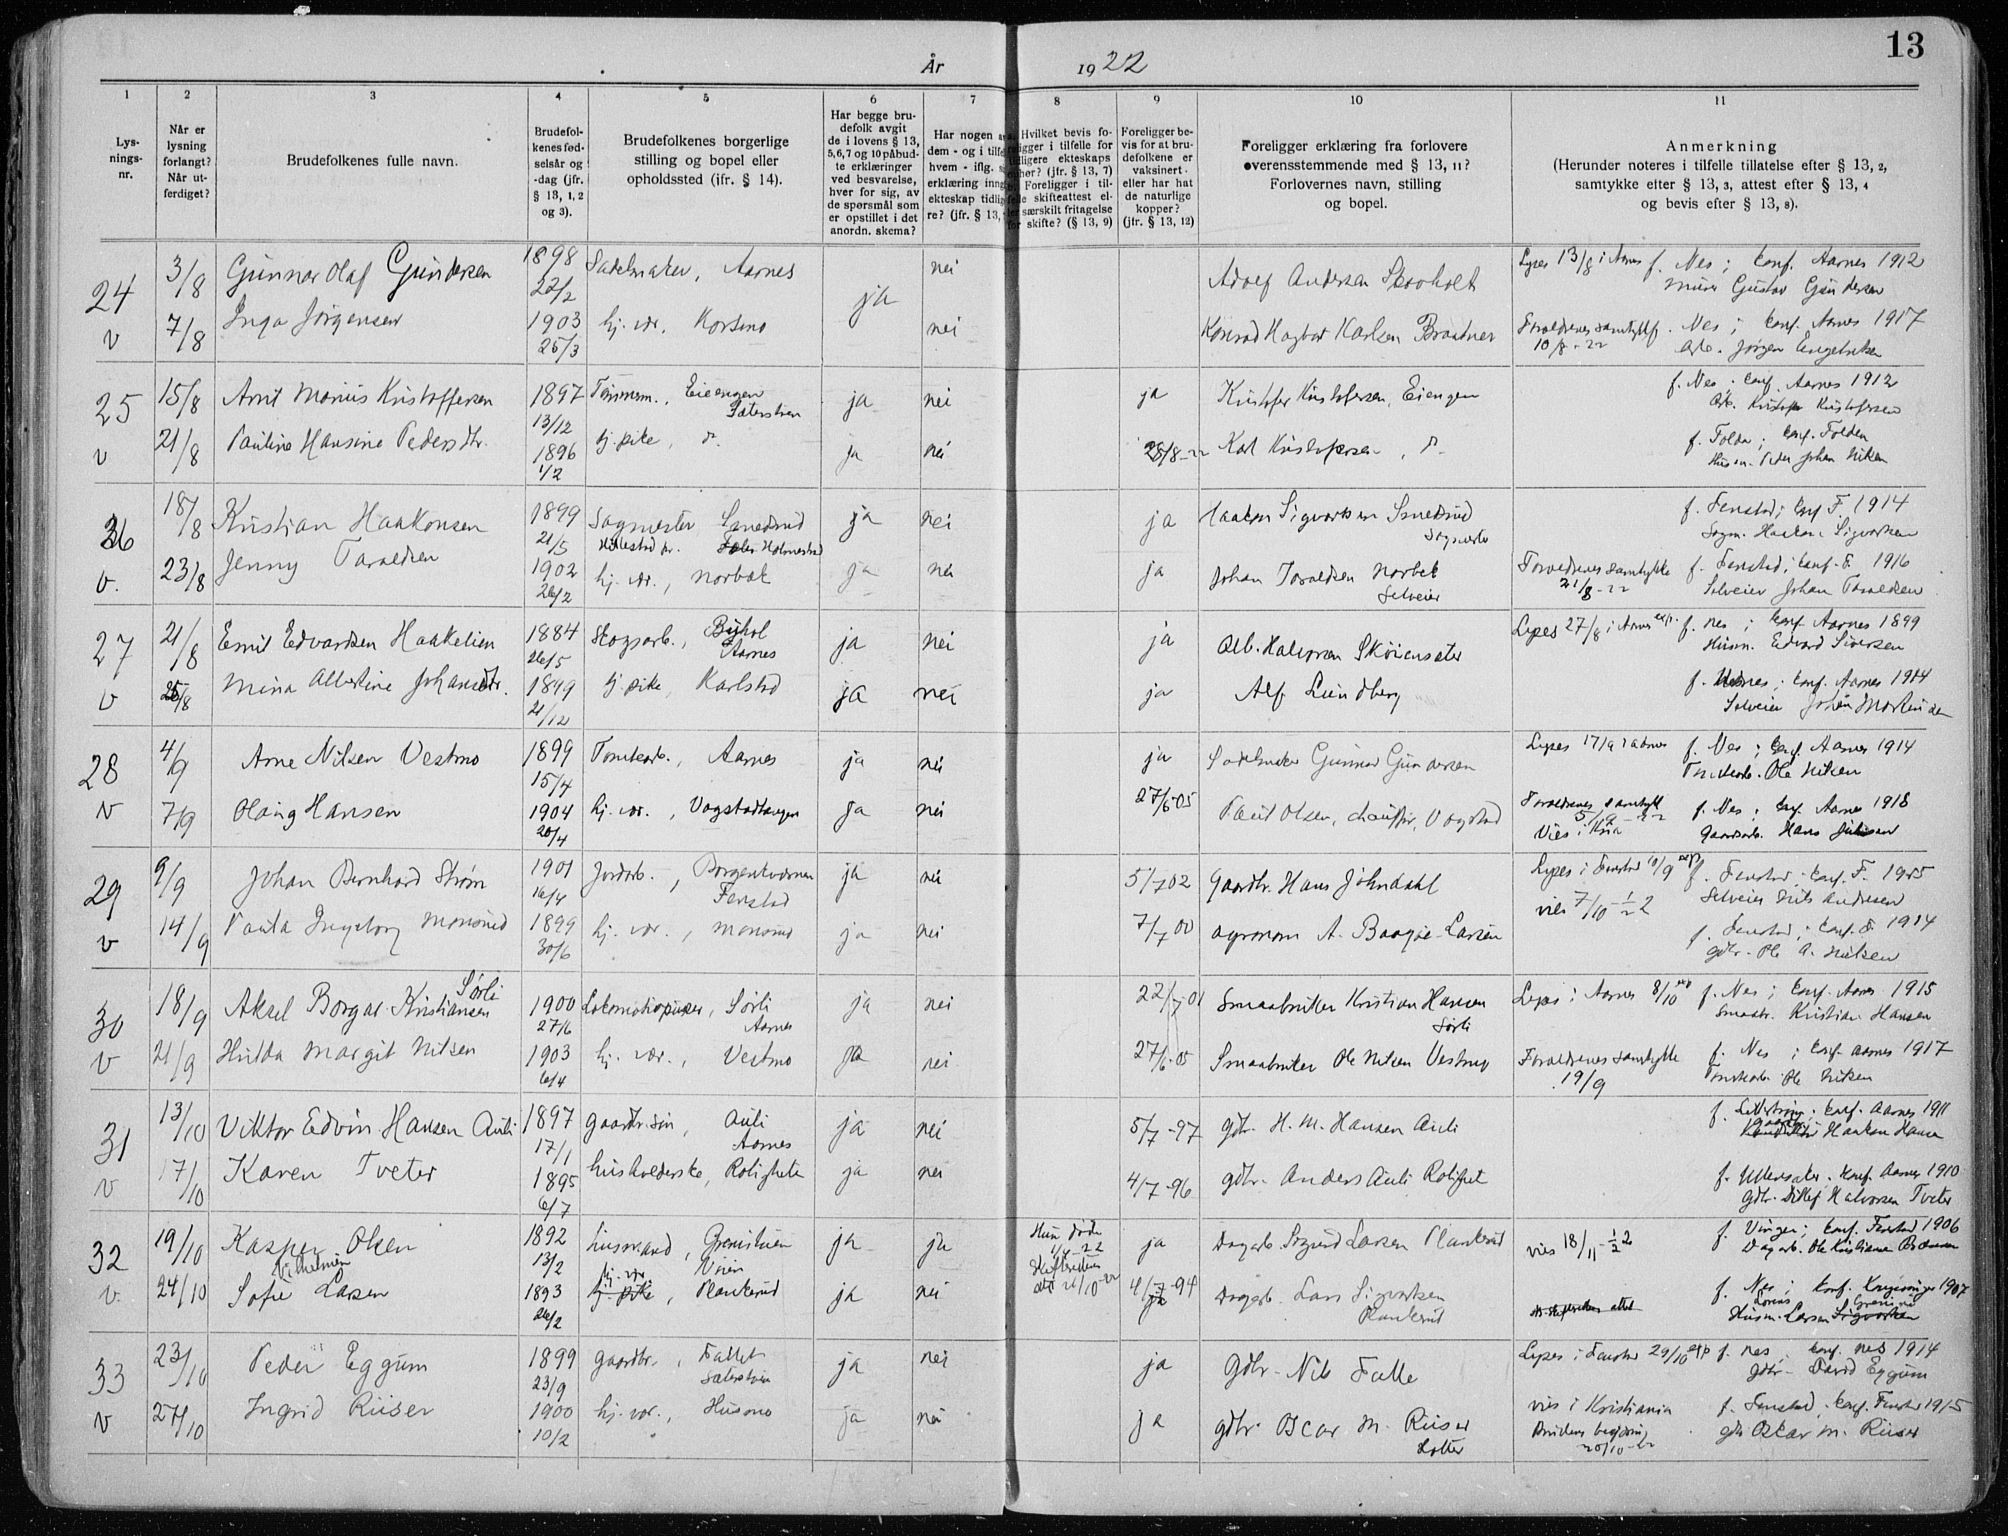 13
År 1922
1 2 3 4 5 6 7 8 9 10 11
Lys-
nings-
nr.
Når er
lysning
forlangt?
Når ut-
ferdiget?
Brudefolkenes fulle navn.
Brudefol-
kenes fød-
selsår og
-dag (jfr.
§ 13, 1, 2
og 3).
Brudefolkenes borgerlige
stilling og bopel eller
opholdssted (ifr. § 14).
Har begge bru-
defolk avgit
de i lovens § 13,
5,6,7 og 10 påbud-
te erklæringer
ved besvarelse,
hver for sig, av
de spørsmål som
er opstillet i det
anordn. skema?
Har nogen
dem - og i
hvem - iflg.
erklæring
ekteskap
re? (jfr. § 13,
Hvilket bevis fo-
religger i tilfelle for
tidligere ekteskaps
(jfr. § 13, 7)
Foreligger i til-
skifteattest el-
særskilt fritagelse
for skifte? (§ 13, 9)
Foreligger be-
vis for at bru-
defolkene er
vaksinert
eller har hat
de naturlige
kopper?
(jfr. § 13, 12)
Foreligger erklæring fra forlovere
overensstemmende med § 13, 11?
Forlovernes navn, stilling
og bopel.
Anmerkning
(Herunder noteres i tilfelle tillatelse efter § 13, 2,
samtykke etter § 13, 3, attest efter § 13, 4
og bevis efter § 13, 8).
24 3/8 Gunnar Olaf Gundersen 1898 Sadelmaker, Aarnes nei Adolf Andersen Skovholt Lyses 13/8 i Aarnes f. Nes; conf. Aarnes 1912
22/2 ja Murer Gustav Gundersen
v 7/8 Inga Jørgensen 1903 hj. vær. Korsmo nei Konrad Hagbart Karlsen Braatnes Forældrenes samtykke f. Nes; conf. Aarnes 1917
25/3 10/8-22 Arb. Jørgen Engebretsen
25 15/8 Arnt Marius Kristoffersen 1897 Tømmerm., Eiengen ja nei ja Kristofer Kristofersen, Eiengen f. Nes; conf. Aarnes 1912
13/12 Sæterstøen Arb. Kristofer Kristofersen
v 21/8 Pauline Hansine Pedersdtr. 1896 tj. pike, ja nei 28/8-22 Karl Kristofersen f. Folda; conf. Folden
1/2 Husm. Peder Johan Nilsen
26 18/8 Kristian Haakonsen 1899 Sagmester Smedsrud ja nei ja Haakon Sigvartsen Smedsrud f. Fenstad; conf. F. 1914
21/5 Hillestad pr. Holmestrand Sagm. Haakon Sigvartsen
v. 23/8 Jenny Taraldsen 1902 hj. vær., Norbæk ja nei ja Johan Taraldsen Norbek Forældrenes samtykke f. Fenstad; conf. F. 1916
26/2 Selveier 21/8-22 Selveier Johan Taraldsen
27 21/8 Emil Edvardsen Haakelien 1884 Skogsarb., ja nei ja Alb. Halvorsen Skøiensæter Lyses 27/8 i Aarnes f. Nes; conf. Aarnes 1899
26/5 Aarnes Husm. Edvard Sivertsen
v 25/8 Mina Albertine Johansdtr. 1899 tj. pike, Karlstad ja nei ja Alf Lundberg conf. Aarnes 1914
21/12 Selveier Johan Martinsen
28 4/9 Arne Nilsen Vestmo 1899 Tomtearb., Aarnes ja nei ja Sadelmaker Gunnar Gundersen Lyses 17/9 i Aarnes f. Nes; conf. Aarnes 1914
15/4 Tomtearb. Ole Nilsen
v 7/9 Olaug Hansen 1904 hj. vær., Vogstadhaugen ja nei 27/6-05 Paul Olsen, chauffør, Vogstad Forældrenes samtykke f. Nes; conf. Aarnes 1918
20/4 5/9-22 Vies i Kria Gaardsarb. Hans Julsen
29 9/9 Johan Bernhard Strøm 1901 Jordarb., Borgenkværnen ja nei 5/7 02 Gaardbr. Hans Jøhndahl Lyses i Fenstad 10/9 f. Fenstad; conf. F. 1915
16/4 Fenstad vies 7/10-22 Selveier Nils Andresen
v 14/9 Paula Ingeborg Monsrud 1899 hj. vær., Monsrud ja nei 7/7 00 agronom A. Baagøe-Larsen f. Fenstad; conf. F. 1914
30/6 gdbr. Ole A. Nilsen
30 18/9 Aksel Borgar Kristiansen Sørli 1900 Lokomotivpusser, Sørli ja nei 22/7 01 Smaabruker Kristian Hansen Lyses i Aarnes 8/10 f. Nes; conf. Aarnes 1915
27/6 Aarnes Sørli Smaabr. Kristian Hansen
v 21/9 Hilda Margit Nilsen 1903 hj. vær., Vestmo ja nei 27/6-05 Smaabruker Ole Nilsen Vestmo Forældrenes samtykke f. Nes; conf. Aarnes 1917
6/4 19/9 Tomtearb. Ole Nilsen
31 13/10 Viktor Edvin Hansen Auli 1897 gaardbr. søn, Auli ja nei 5/7-97 gdbr. H. M. Hansen Auli conf. Aarnes 1911
17/1 Aarnes Haakon Hansen
v 17/10 Karen Tveter 1895 husholderske, Rolighete ja nei 4/7-96 gdbr. Anders Auli Rolighet f. Ullensaker. conf. Aarnes 1910
6/7 gdbr. Ditlef Halvorsen Tveter
32 19/10 Kasper Olsen 1892 husmand, Grenistuen ja ja Hun døde ja Dagarb. Sigurd Larsen Plankerud vies 18/11-22 f. Vinger; conf. Fenstad 1906
13/2 1/4-22 Dagarb. Ole Kristiansen
v. 24/10 Sofie Vilhelmine Larsen 1893 hj. vær. tj. pike, Plankerud ja nei 26/10-22 4/7-94 Dagarb. Lars Sigvartsen f. Nes; conf. Kongsvinger 1907
26/2 Plankerud Husm. Larsen Sigvartsen
33 23/10 Peder Eggum 1899 gaardbr., Fallet ja nei ja Gdbr. Nils Falle Lyses i Fenstad 29/10 f. Nes; conf. Nes 1914
23/9 Sæterstøen gdbr. David Eggum
v 27/10 Ingrid Riiser 1900 hj. vær., Husmo ja nei ja gdbr. Oscar M. Riiser vies i Kristiania f. Fenstad; conf. Fenstad 1915
10/2 Brudens begjæring 20/10-22 gdb. Oskar M. Riiser